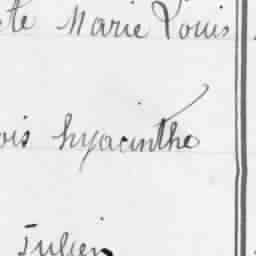 te Marie Louis
ois hyacinthe
Julien